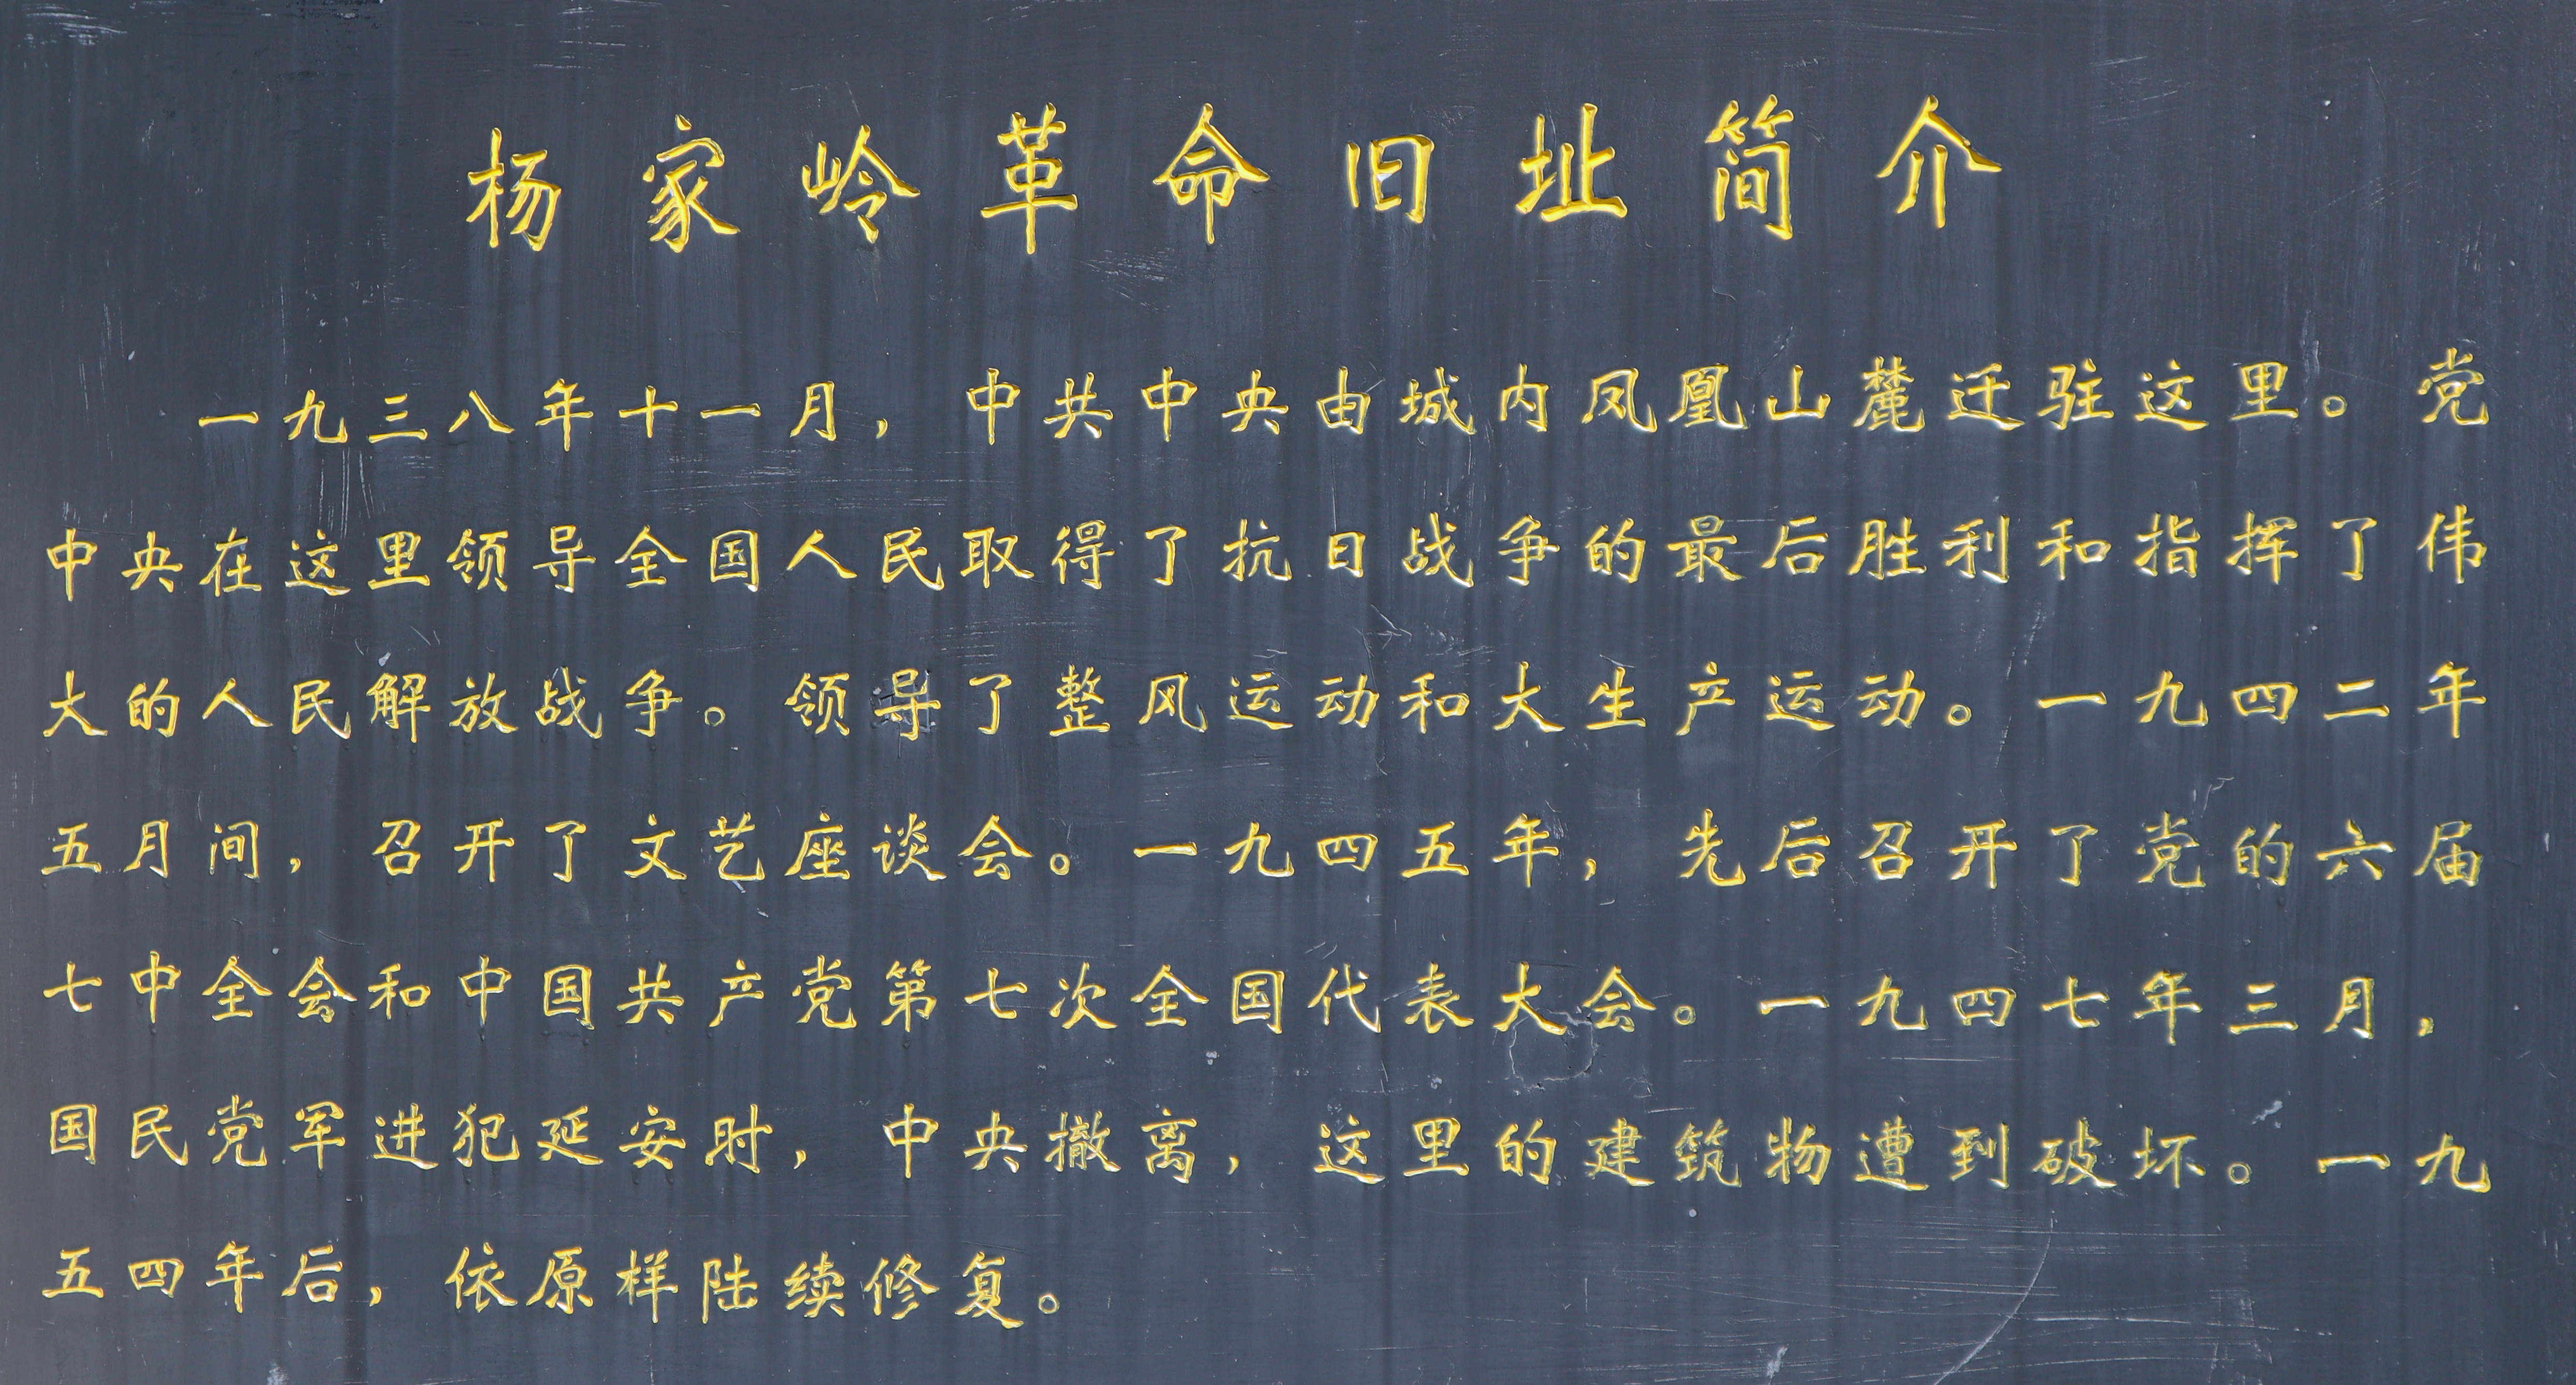 杨家岭革命旧址简介
一九三八年十一月，中共中央由城内凤凰山麓迁驻这里。党
中央在这里领导全国人民取得了抗日战争的最后胜利和指挥了伟
大的人民解放战争。领导了整风运动和大生产运动。一九四二年
五月间，召开了文艺座谈会。一九四五年，先后召开了党的六届
七中全会和中国共产党第七次全国代表大会。一九四七年三月，
国民党军进犯延安时，中央撤离，这里的建筑物遭到破坏。一九
五四年后，依原样陆续修复。